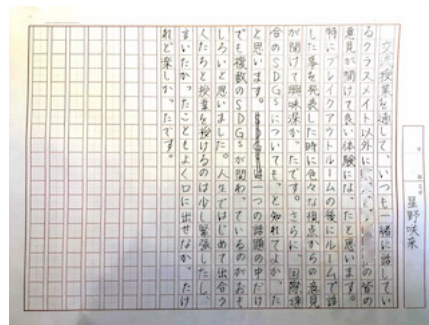 星野咲来
交流授業を通して、いつも一緒に話してい
るクラスメイト以外に の皆の
意見が聞けて良い体験になったと思います。
特にブレイクアウトルームの後にルームで話
した事を発表した時に色々な視点からの意見
が聞けて興味深かったです。さらに、国際連
合のSDGsについてもっと知れてよかった
と思います。 一つの話題の中だけ
でも複数のSDGsが関わっているのがおも
しろいと思いました。人生ではじめて出会う
人たちと授業を受けるのは少し緊張したし、
言いたかったこともよく口に出せなかったけ
れど楽しかったです。